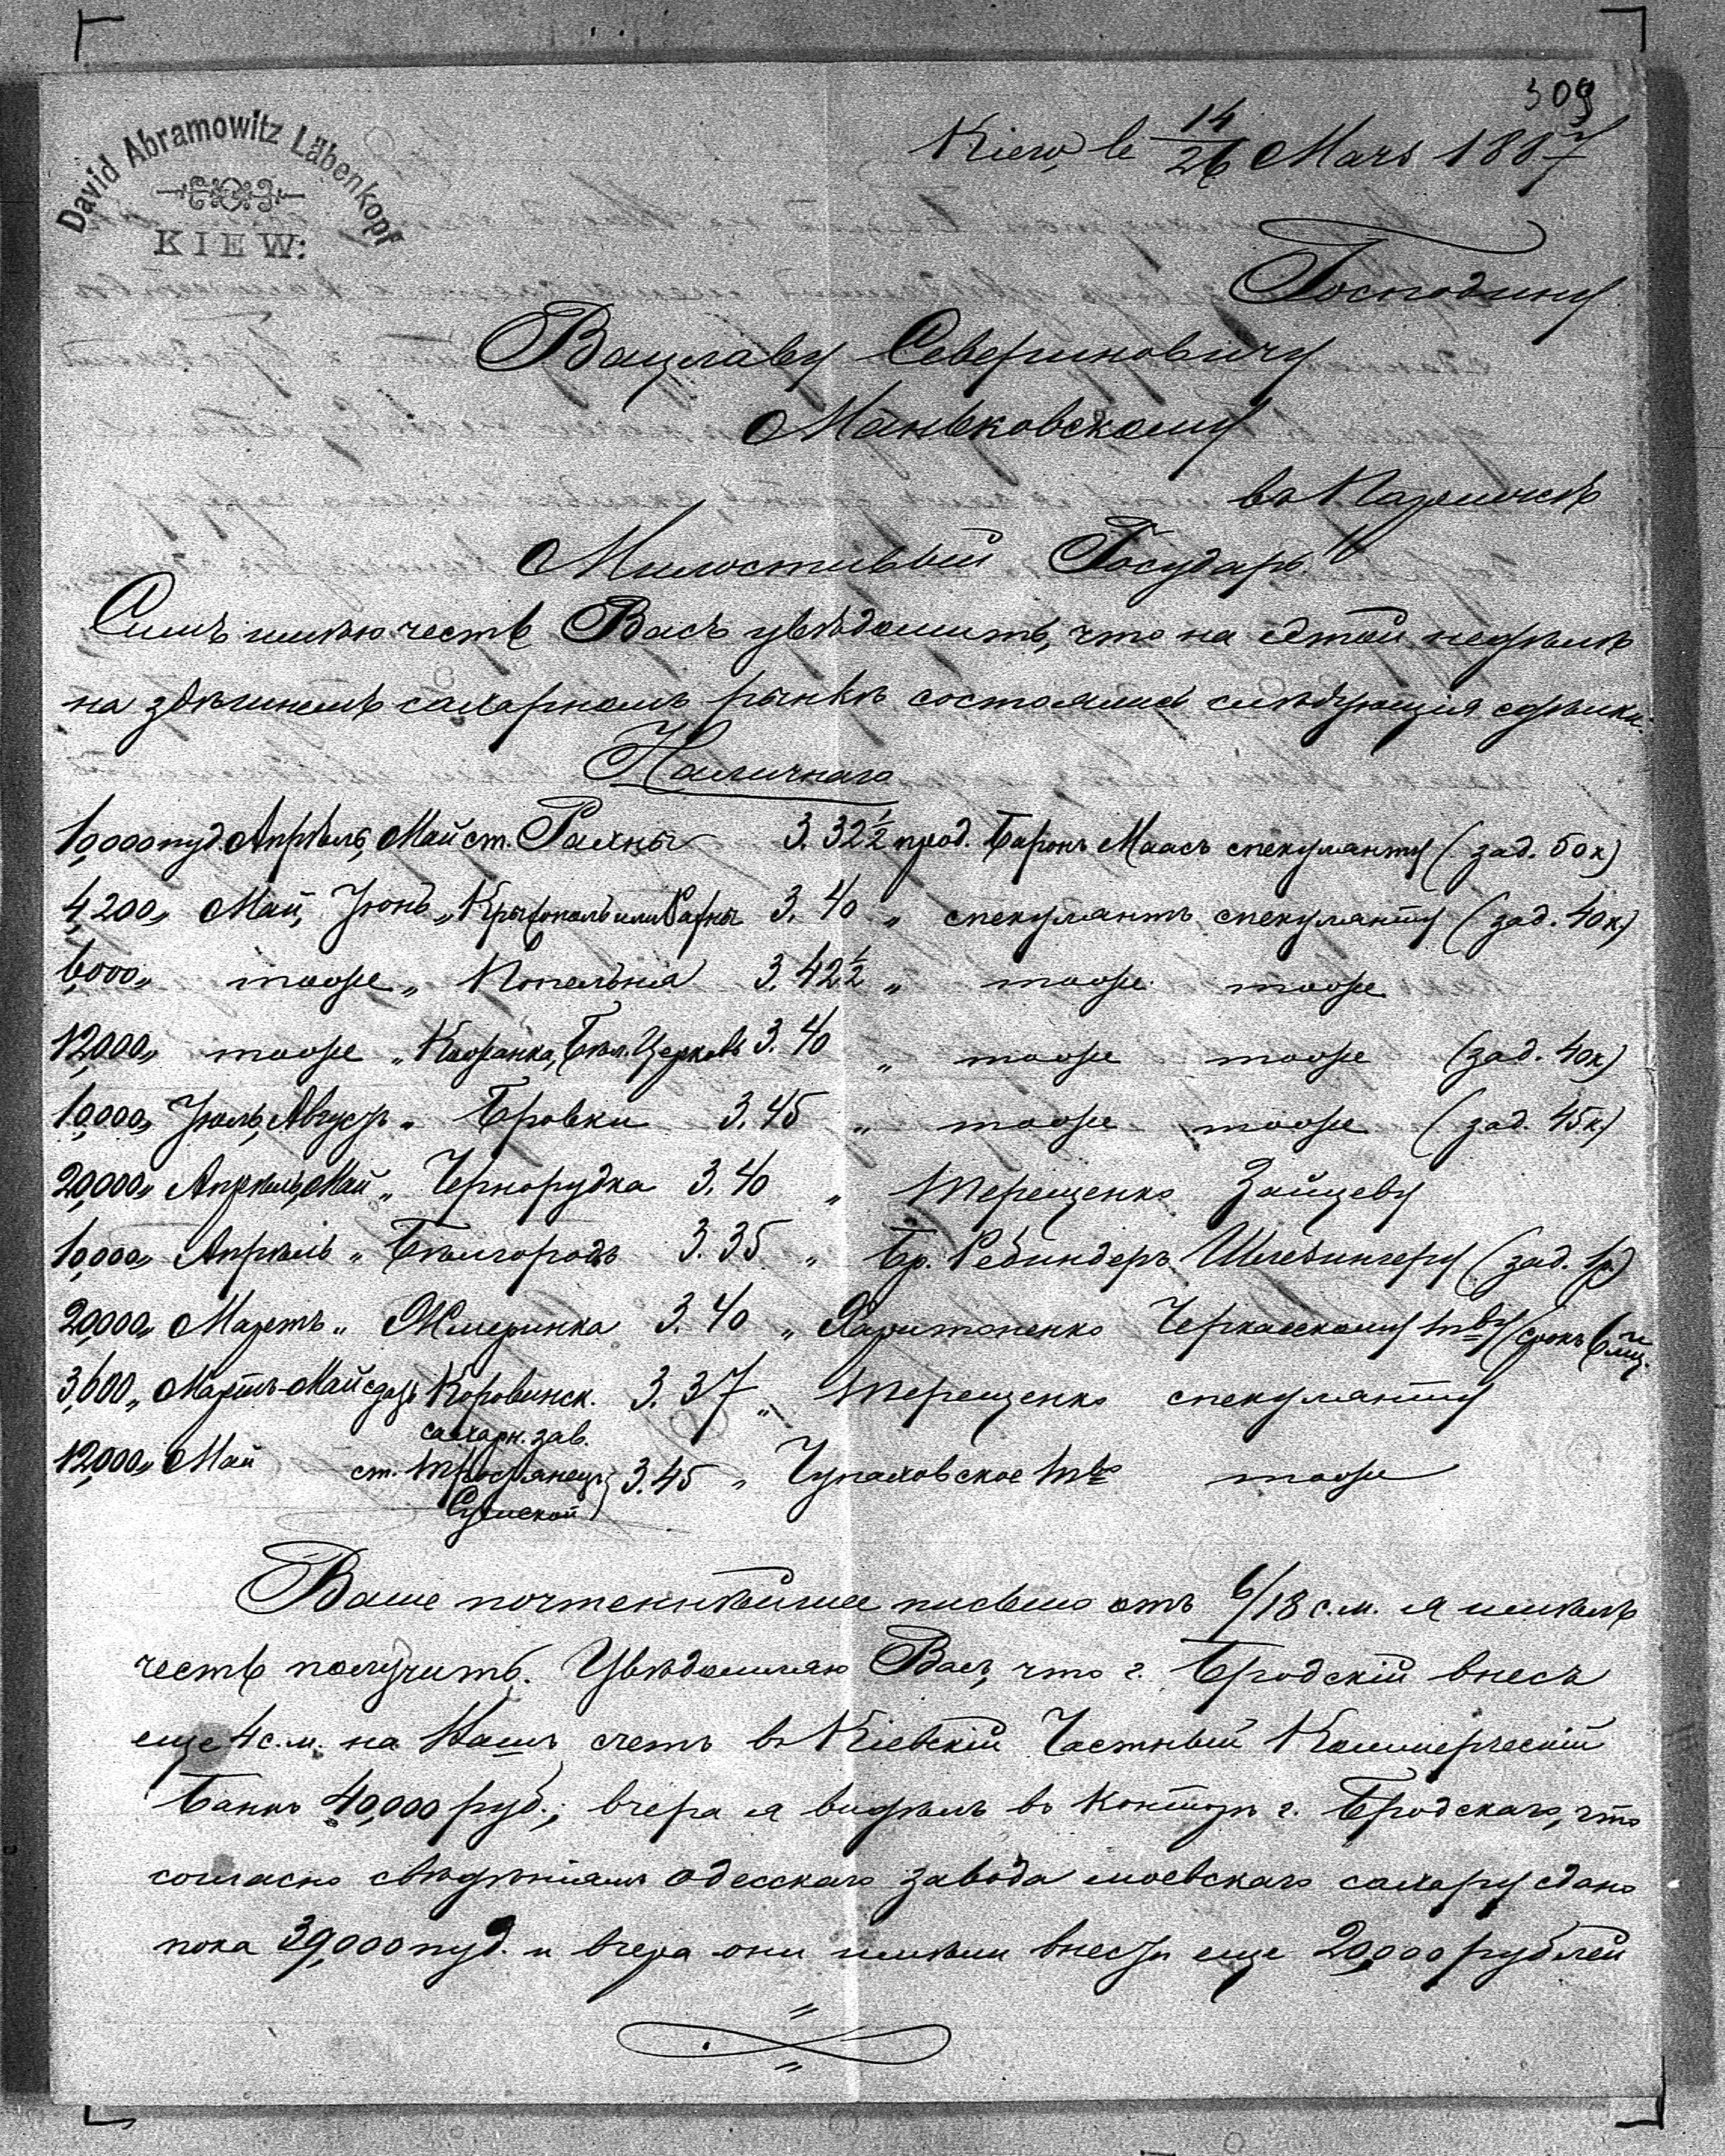 309
David Abramowitz Läbenkopf
KIEW:
Kiew, le 14/26 Mars 1887
Господину
Вацлаву Севериновичу
Маньковскому
въ
Милостивый Государь!
Симъ имѣю честь Васъ увѣдомить, что на этой недѣлѣ
на здѣшнемъ сахарномъ рынкѣ состоялись слѣдующія сдѣлки:
Наличнаго
10,000 пуд. Апрѣль, Май ст. Рахны 3.32½ прод. Баронъ Маасъ спекулянту (зад. 50к)
4,200 „ Май, Іюнь „ Крыжополь или Рахны 3.40 „ спекулянтъ спекулянту (зад. 40к.)
6,000 „ тоже „ Попельня 3.42½ „ тоже тоже
12,000 „ тоже „ Кожанка, Бѣл. Церковь 3.40 „ тоже тоже (зад. 40к)
10,000 „ Іюль, Августъ „ Бровки 3.45 „ тоже тоже (зад. 45к)
20,000 „ Апрѣль, Май „ Чернорудка 3.40 „ Терещенко Зайцеву
10,000 „ Апрѣль „ Бѣлгородъ 3.35 „ Бр. Ребиндеръ Шлезингеру (зад. 1р.)
20,000 „ Мартъ „ Жмеринка 3.40 „ Харитоненко Черкасскому Тву (срокъ 6 мц.
3,600 „ Мартъ-Май сдача Коровинск. 3.37 „ Терещенко спекулянту
сахарн. зав.
12,000 „ Май ст. Тростянецъ 3.45 „ Чупаховское Тво тоже
Сумской)
Ваше почтеннѣйшее письмо отъ 6/18 с.м. я имѣлъ
честь получить. Увѣдомляю Васъ, что г. Бродскій внесъ
еще 4 с.м. на Вашъ счетъ въ Кіевскій Частный Коммерческій
Банкъ 40,000 руб.; вчера я видѣлъ въ конторѣ г. Бродскаго, что
согласно свѣдѣніямъ одесскаго завода моевскаго сахару сдано
пока 39,000 пуд. и вчера они имѣли внесть еще 20,000 рублей